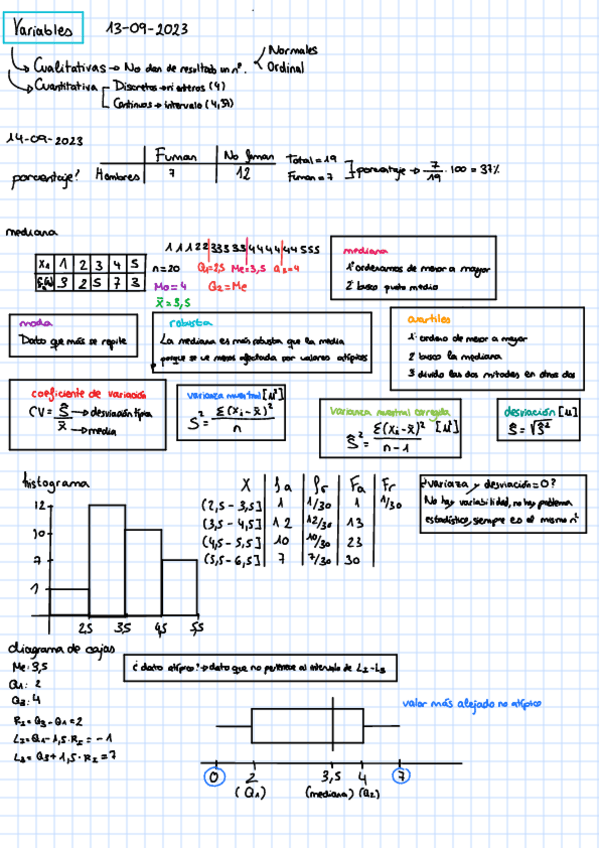 Variables 13-09-2023
Cualitativas → No dan de resultado un nº. Normales
Ordinal
Cuantitativa Discretas → nº enteros (4)
Continuas → intervalo (4,37)
14-09-2023
Fuman No fuman
porcentaje? Hombres 7 12
Total = 19
Fuman = 7
porcentaje → 7/19 · 100 = 37%
mediana
1 1 1 2 2 3 3 3 3 3 4 4 4 4 4 4 4 5 5 5
Xi 1 2 3 4 5
3 2 5 7 3
n=20 Q1=2,5 Me=3,5 Q3=4
Mo=4 Q2=Me
x̄=3,5
mediana
1º ordenamos de menor a mayor
2º busco punto medio
moda
Dato que más se repite
robusta
La mediana es más robusta que la media
porque se ve menos afectada por valores atípicos
cuartiles
1º ordeno de menor a mayor
2º busco la mediana
3º divido las dos mitades en otras dos
coeficiente de variación
CV = Ŝ/x̄ → desviación típica
→ media
varianza muestral [u²]
S² = Σ(xi-x̄)²/n
Varianza muestral corregida
Ŝ² = Σ(xi-x̄)²/n-1 [u²]
desviación [u]
Ŝ = √Ŝ²
histograma
12
10
7
1
2,5 3,5 4,5 5,5
X fa fr Fa Fr
(2,5 - 3,5] 1 1/30 1 1/30
(3,5 - 4,5] 12 12/30 13
(4,5 - 5,5] 10 10/30 23
(5,5 - 6,5] 7 7/30 30
¿varianza y desviación = 0?
No hay variabilidad, no hay problema
estadístico, siempre es el mismo nº
diagrama de cajas
Me: 3,5
Q1: 2
Q3: 4
RI = Q3 - Q1 = 2
LI = Q1 - 1,5 · RI = -1
LS = Q3 + 1,5 · RI = 7
¿dato atípico? → dato que no pertenece al intervalo de LI - LS
valor más alejado no atípico
0 2 3,5 4 7
(Q1) (mediana) (Q2)